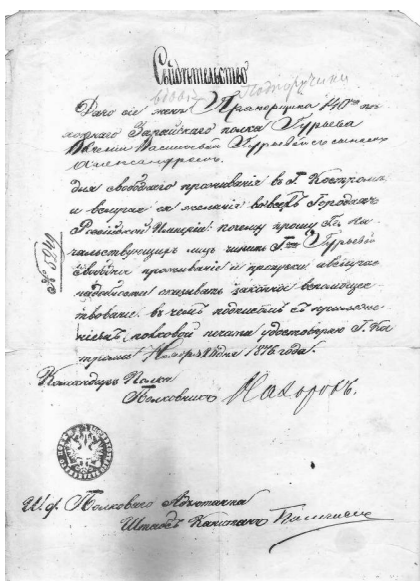 Свидѣтельство
Подпоручика
Дано сіе женѣ Прапорщика 140го пѣ
хотнаго Зарайскаго полка Гурьева
Васильевой Гурьевой съ сыномъ
Александромъ,
для свободнаго проживанія въ Г. Костромѣ
и въ случаѣ ея желанія во всѣхъ Городахъ
Россійской Имперіи: почему прошу Гг. На
чальствующихъ лицъ чинить Г-жѣ Гурьевой
свободное проживаніе и пропускъ а въ случаѣ
надобности оказывать законное вспомощес
твованіе, въ чемъ подписомъ съ приложе
ніемъ полковой печати удостоверяю Г. Ко
строма дня 1876 года.
Командиръ Полка
Полковникъ
И. ф. Полковаго Адъютанта
Штабсъ Капитанъ